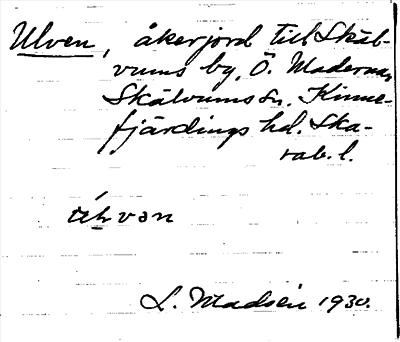 Ulven, åkerjord till Skäl-
vums by, Ö. Madernas,
Skälvums sn. Kinne-
fjärdings hd. Ska-
rab. l.
L. Madsén 1930.